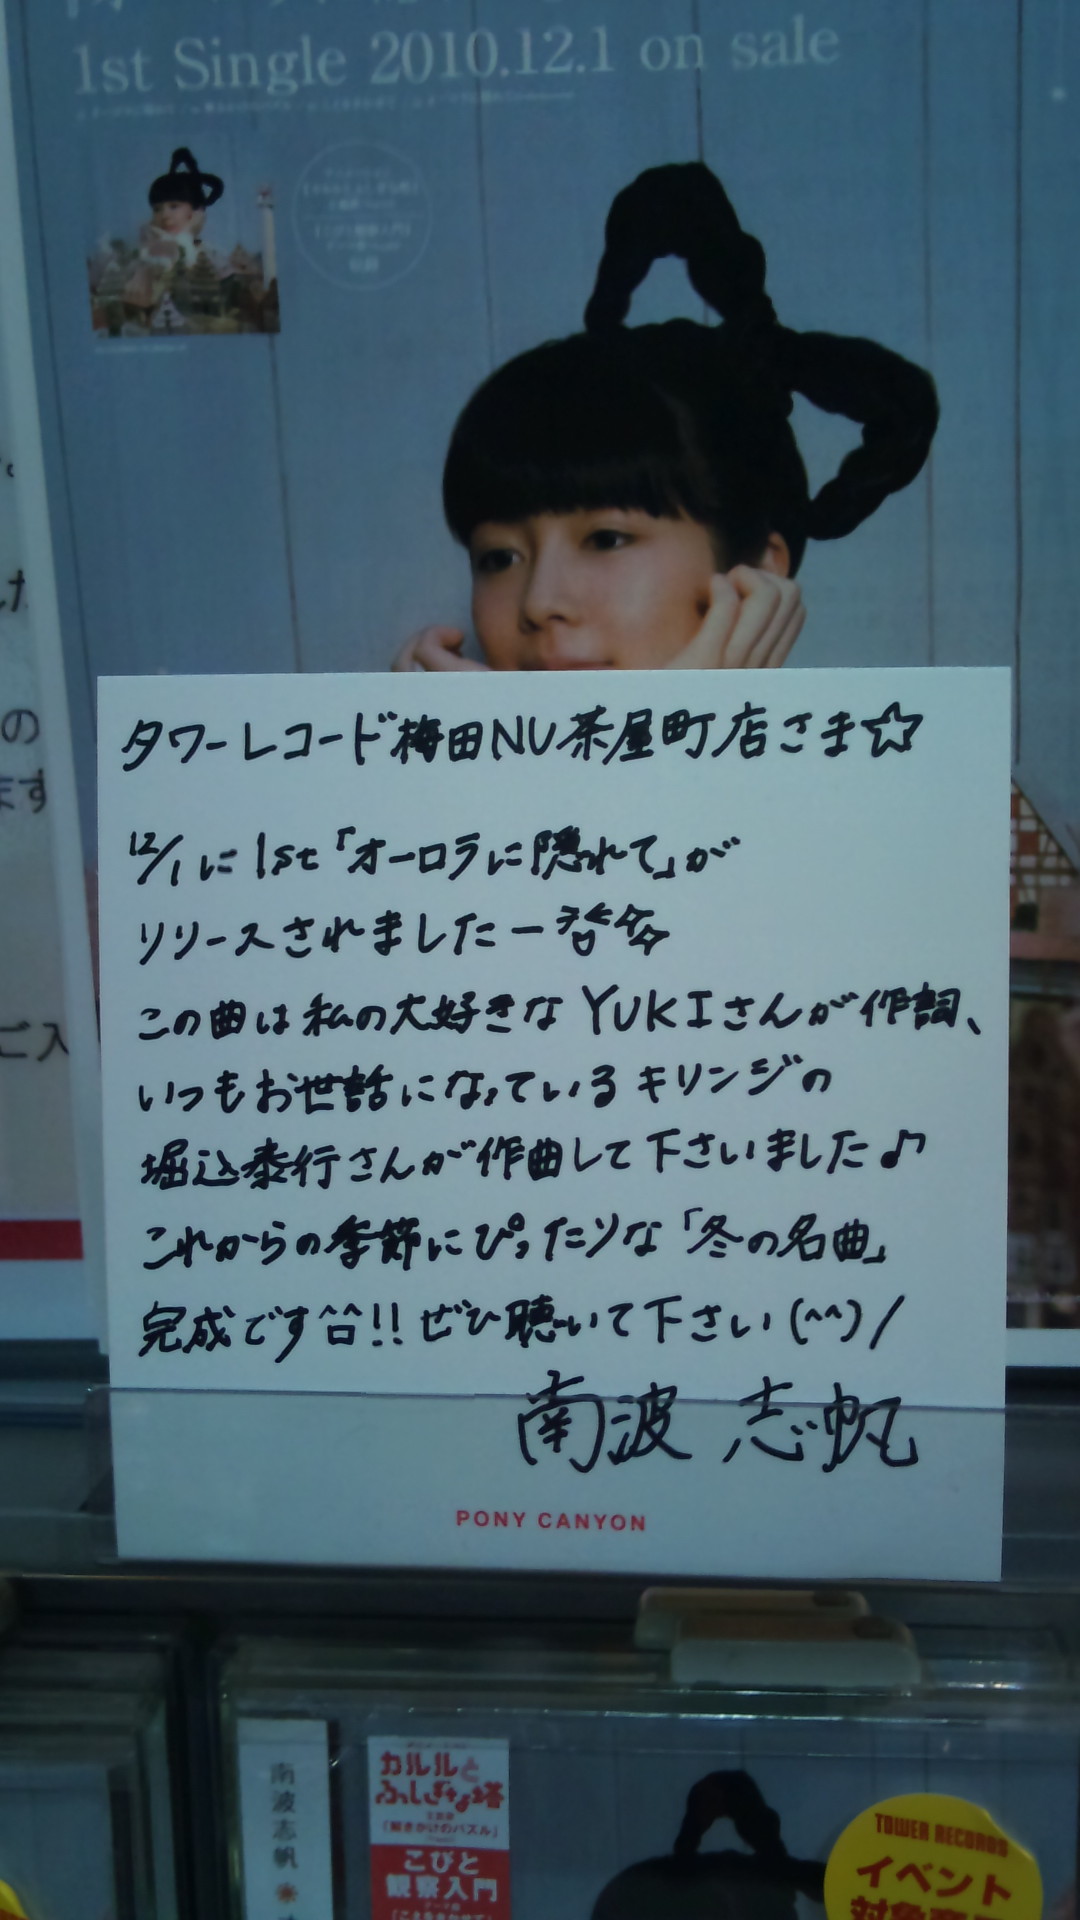 1st Single 2010.12.1 on sale
タワーレコード梅田NU茶屋町店さま☆
12/1に1st「オーロラに隠れて」が
リリースされましたー
この曲は私の大好きなYUKIさんが作詞、
いつもお世話になっているキリンジの
堀込泰行さんが作曲して下さいました♪
これからの季節にぴったりな「冬の名曲」
完成です!!ぜひ聴いて下さい(^^)/
南波 志帆
PONY CANYON
南波志帆
カルルと
ふしぎな塔
「解きかけのパズル」
こびと
観察入門
TOWER RECORDS
イベント
の
ます
ご入